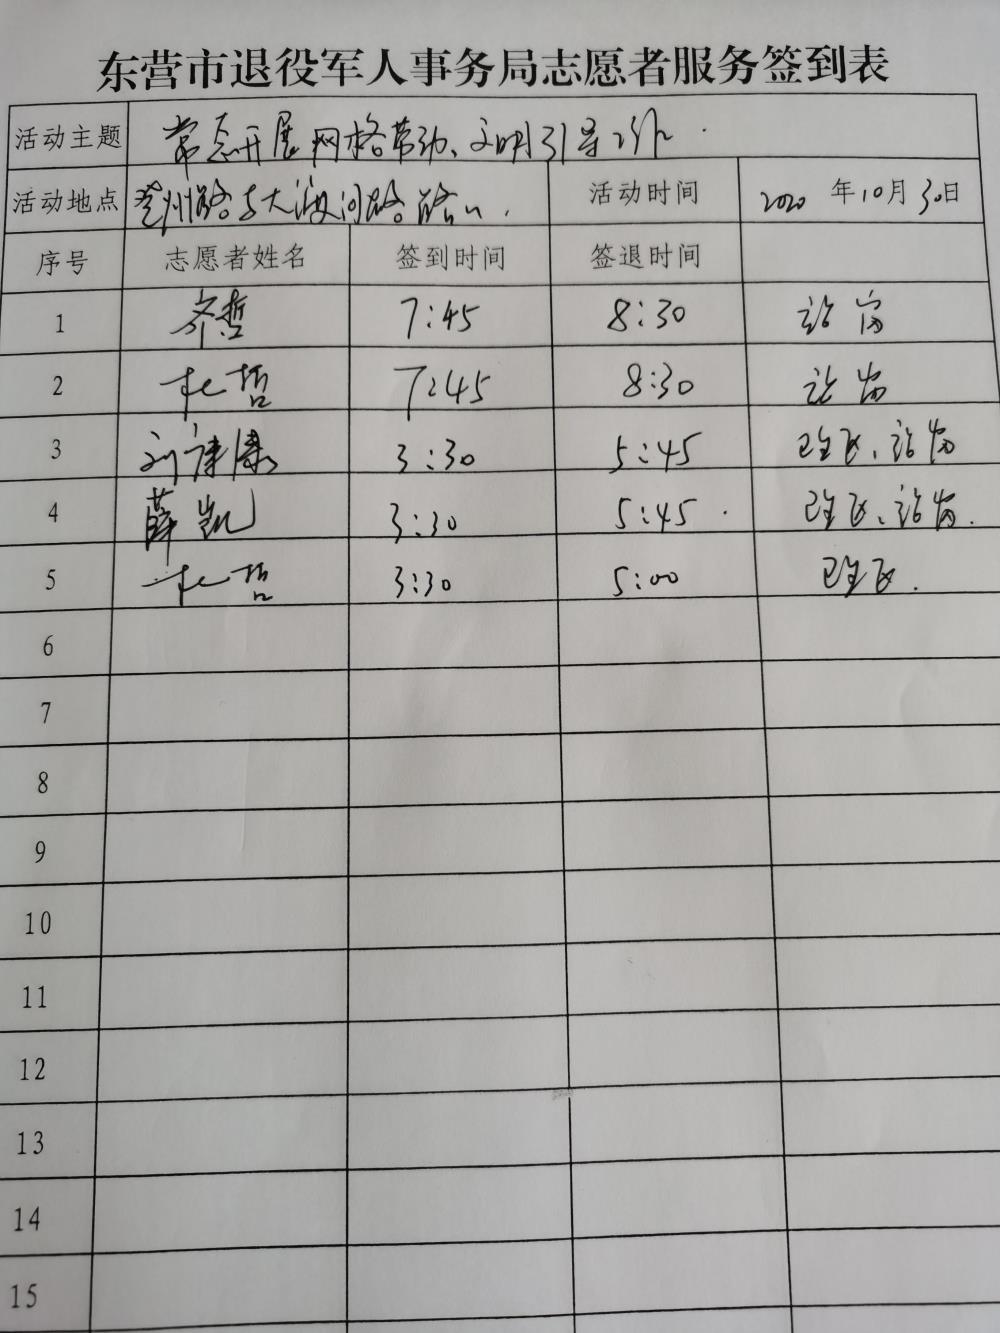 东营市退役军人事务局志愿者服务签到表
活动主题 常态开展网格劳动、文明引导工作.
活动地点 州路与大渡河路路口. 活动时间 2020年10月30日
序号 志愿者姓名 签到时间 签退时间
1 齐哲 7:45 8:30 站岗
2 杜哲 7:45 8:30 站岗
3 刘建康 3:30 5:45 站岗
4 薛凯 3:30 5:45. 站岗.
5 杜哲 3:30 5:00
6
7
8
9
10
11
12
13
14
15